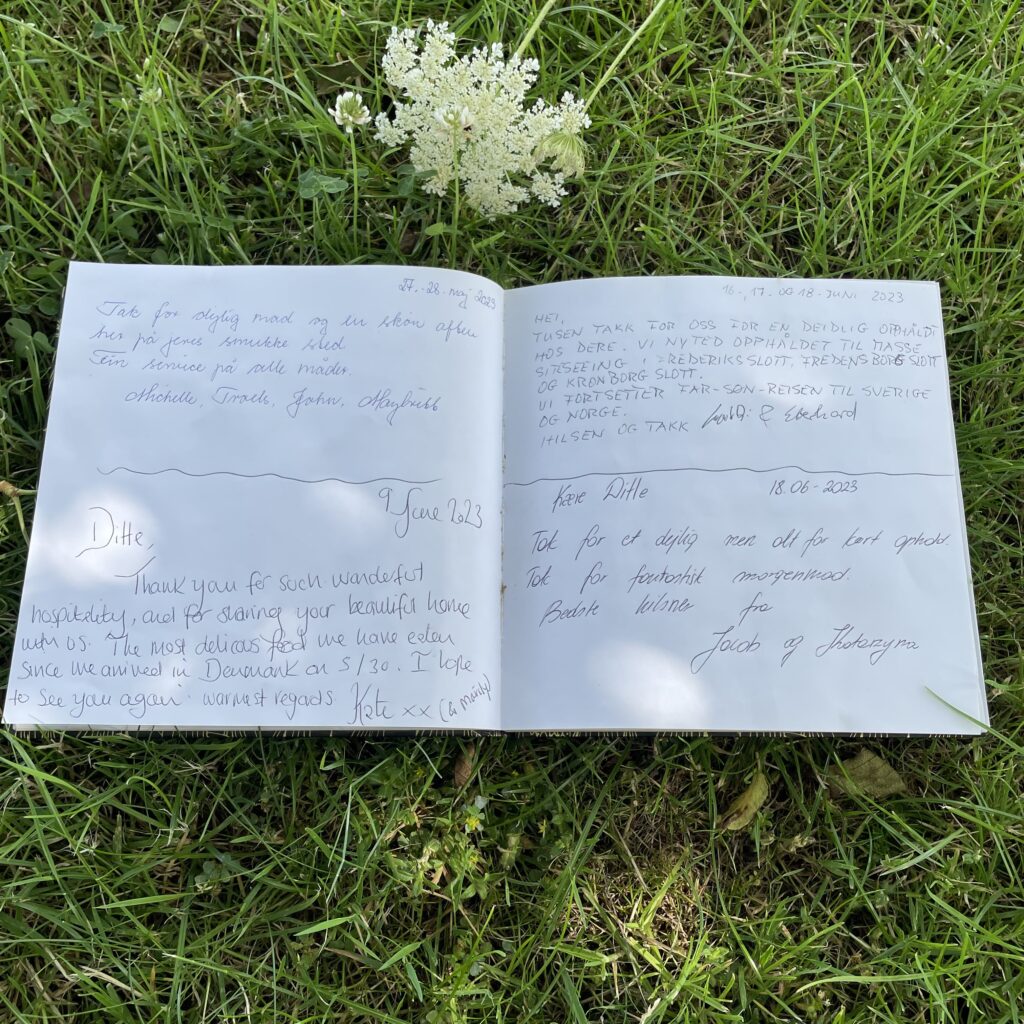 27.-28. maj 2023
Tak for dejlig mad og en skøn aften
her på jeres smukke sted
Fin service på alle måder.
Michelle, Troels, John, Maybritt
9 June 2023
Ditte,
Thank you for such wonderful
hospitality, and for sharing your beautiful home
with us. The most delicious food we have eaten
since we arrived in Denmark on 5/30. I hope
to see you again. warmest regards
Kate xx
16., 17. OG 18. JUNI 2023
HEI,
TUSEN TAKK FOR OSS FOR EN DEIDLIG OPPHÅLDT
HOS DERE. VI NYTED OPPHÅLDET TIL MASSE
SITESEEING I FREDERIKSSLOTT, FREDENSBORG SLOTT
OG KRONBORG SLOTT.
VI FORTSETTER FAR-SØN-REISEN TIL SVERIGE
OG NORGE.
HILSEN OG TAKK & Eberhard
Kære Ditte 18.06-2023
Tak for et dejlig men alt for kort ophold.
Tak for fantastisk morgenmad.
Bedste hilsner fra
Jacob og Katarzyna